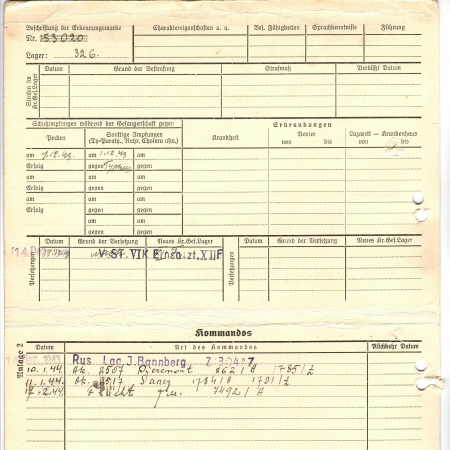 Beschriftung der Erkennungsmarke Charaktereigenschaften u. a. Bes. Fähigkeiten Sprachkenntnisse Führung
Nr. 53020
Lager: 326
Strafen im Kr.Gef.Lager
Datum Grund der Bestrafung Strafmaß Verbüßt Datum
Schutzimpfungen während der Gefangenschaft gegen Erkrankungen
Pocken Sonstige Impfungen (Ty-Paraty., Ruhr, Cholera usw.) Krankheit Revier Lazarett — Krankenhaus
von bis von bis
am 7.12.43 am 1.12.43 am
Erfolg gegen Typhus gegen
am am am
Erfolg gegen gegen
am am am
Erfolg gegen gegen
am am
gegen gegen
Versetzungen
Datum Grund der Versetzung Neues Kr.Gef.Lager Datum Grund der Versetzung Neues Kr.Gef.Lager
v. ST. VIK XII F
Versetzungen
Anlage 2
Kommandos
Datum Art des Kommandos Rückkehr Datum
1943 Rus. Lag. J. Bannberg
10.1.44. 2507 862/A 1785/Z
11.1.44. 2517 1784/A 1791/Z
17.2.44. 7492/A